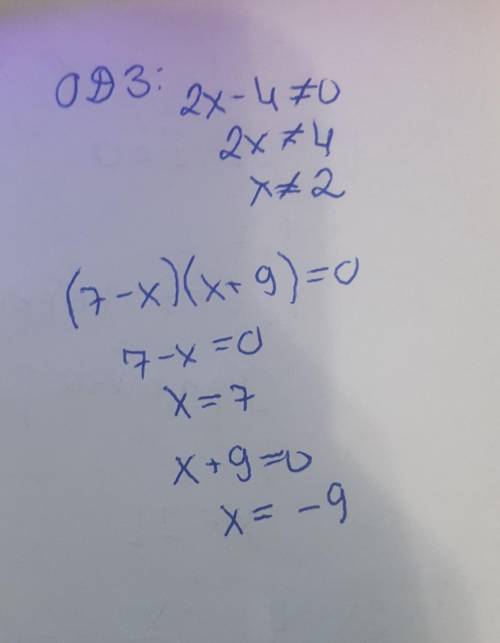 ОДЗ: 2x-4≠0
2x≠4
x≠2
(7-x)(x+9)=0
7-x=0
x=7
x+9=0
x=-9